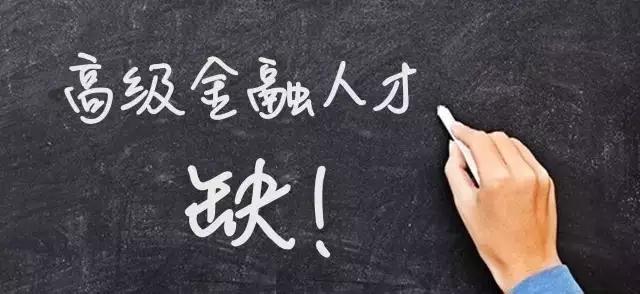 高级金融人才
缺！